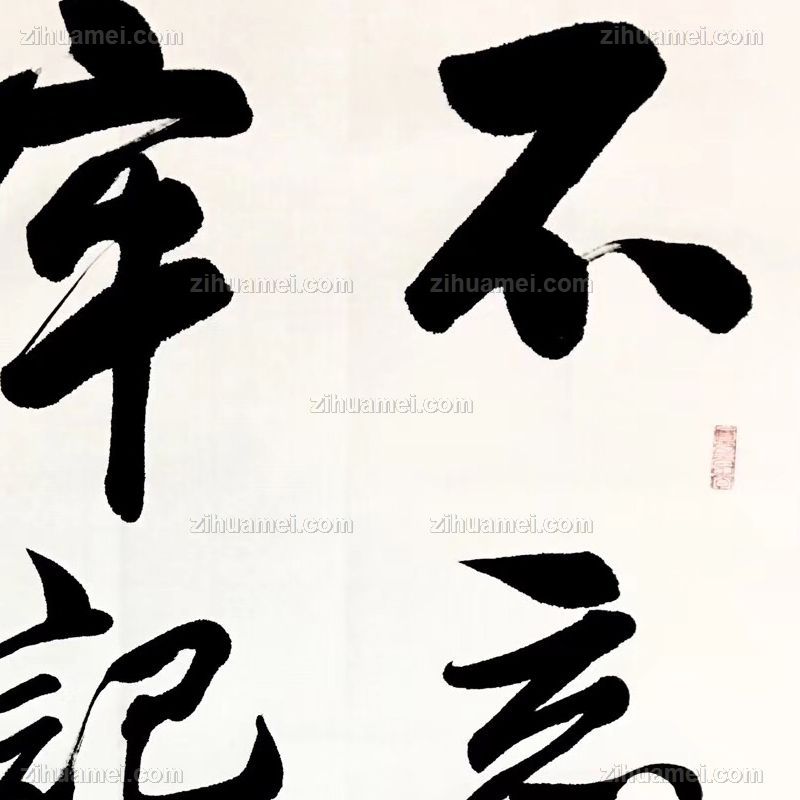 不忘
牢記
zihuamei.com zihuamei.com
zihuamei.com zihuamei.com
zihuamei.com
zihuamei.com zihuamei.com
zihuamei.com zihuamei.com